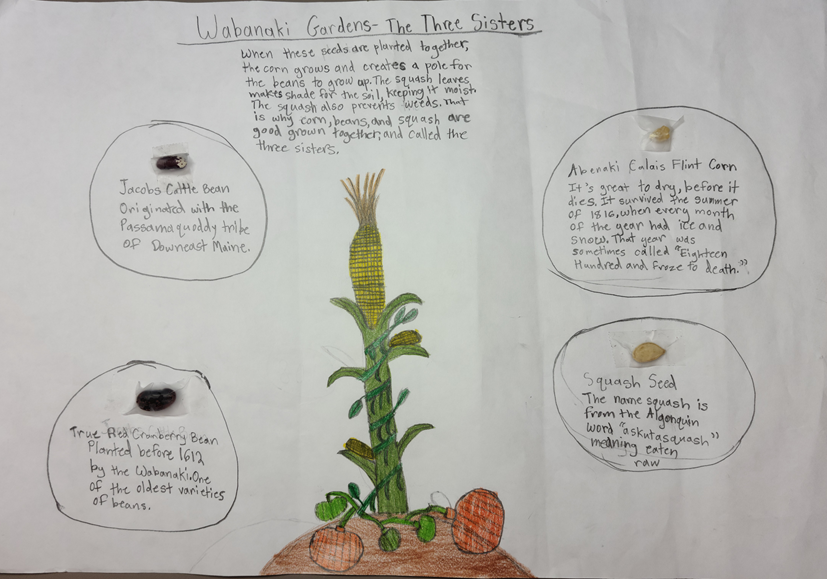 Wabanaki Gardens - The Three Sisters
When these seeds are planted together,
the corn grows and creates a pole for
the beans to grow up. The squash leaves
makes shade for the soil, keeping it moist
The squash also prevents weeds. That
is why corn, beans, and squash are
good grown together, and called the
three sisters.
Jacobs Cattle Bean
Originated with the
Passamaquoddy tribe
of Downeast Maine.
Abenaki Calais Flint Corn
It's great to dry, before it
dies. It survived the summer
of 1816, when every month
of the year had ice and
snow. That year was
sometimes called "Eighteen
Hundred and Froze to death."
True Red Cranberry Bean
Planted before 1612
by the Wabanaki. One
of the oldest varieties
of beans.
Squash Seed
The name squash is
from the Algonquin
word "askutasquash"
meaning eaten
raw